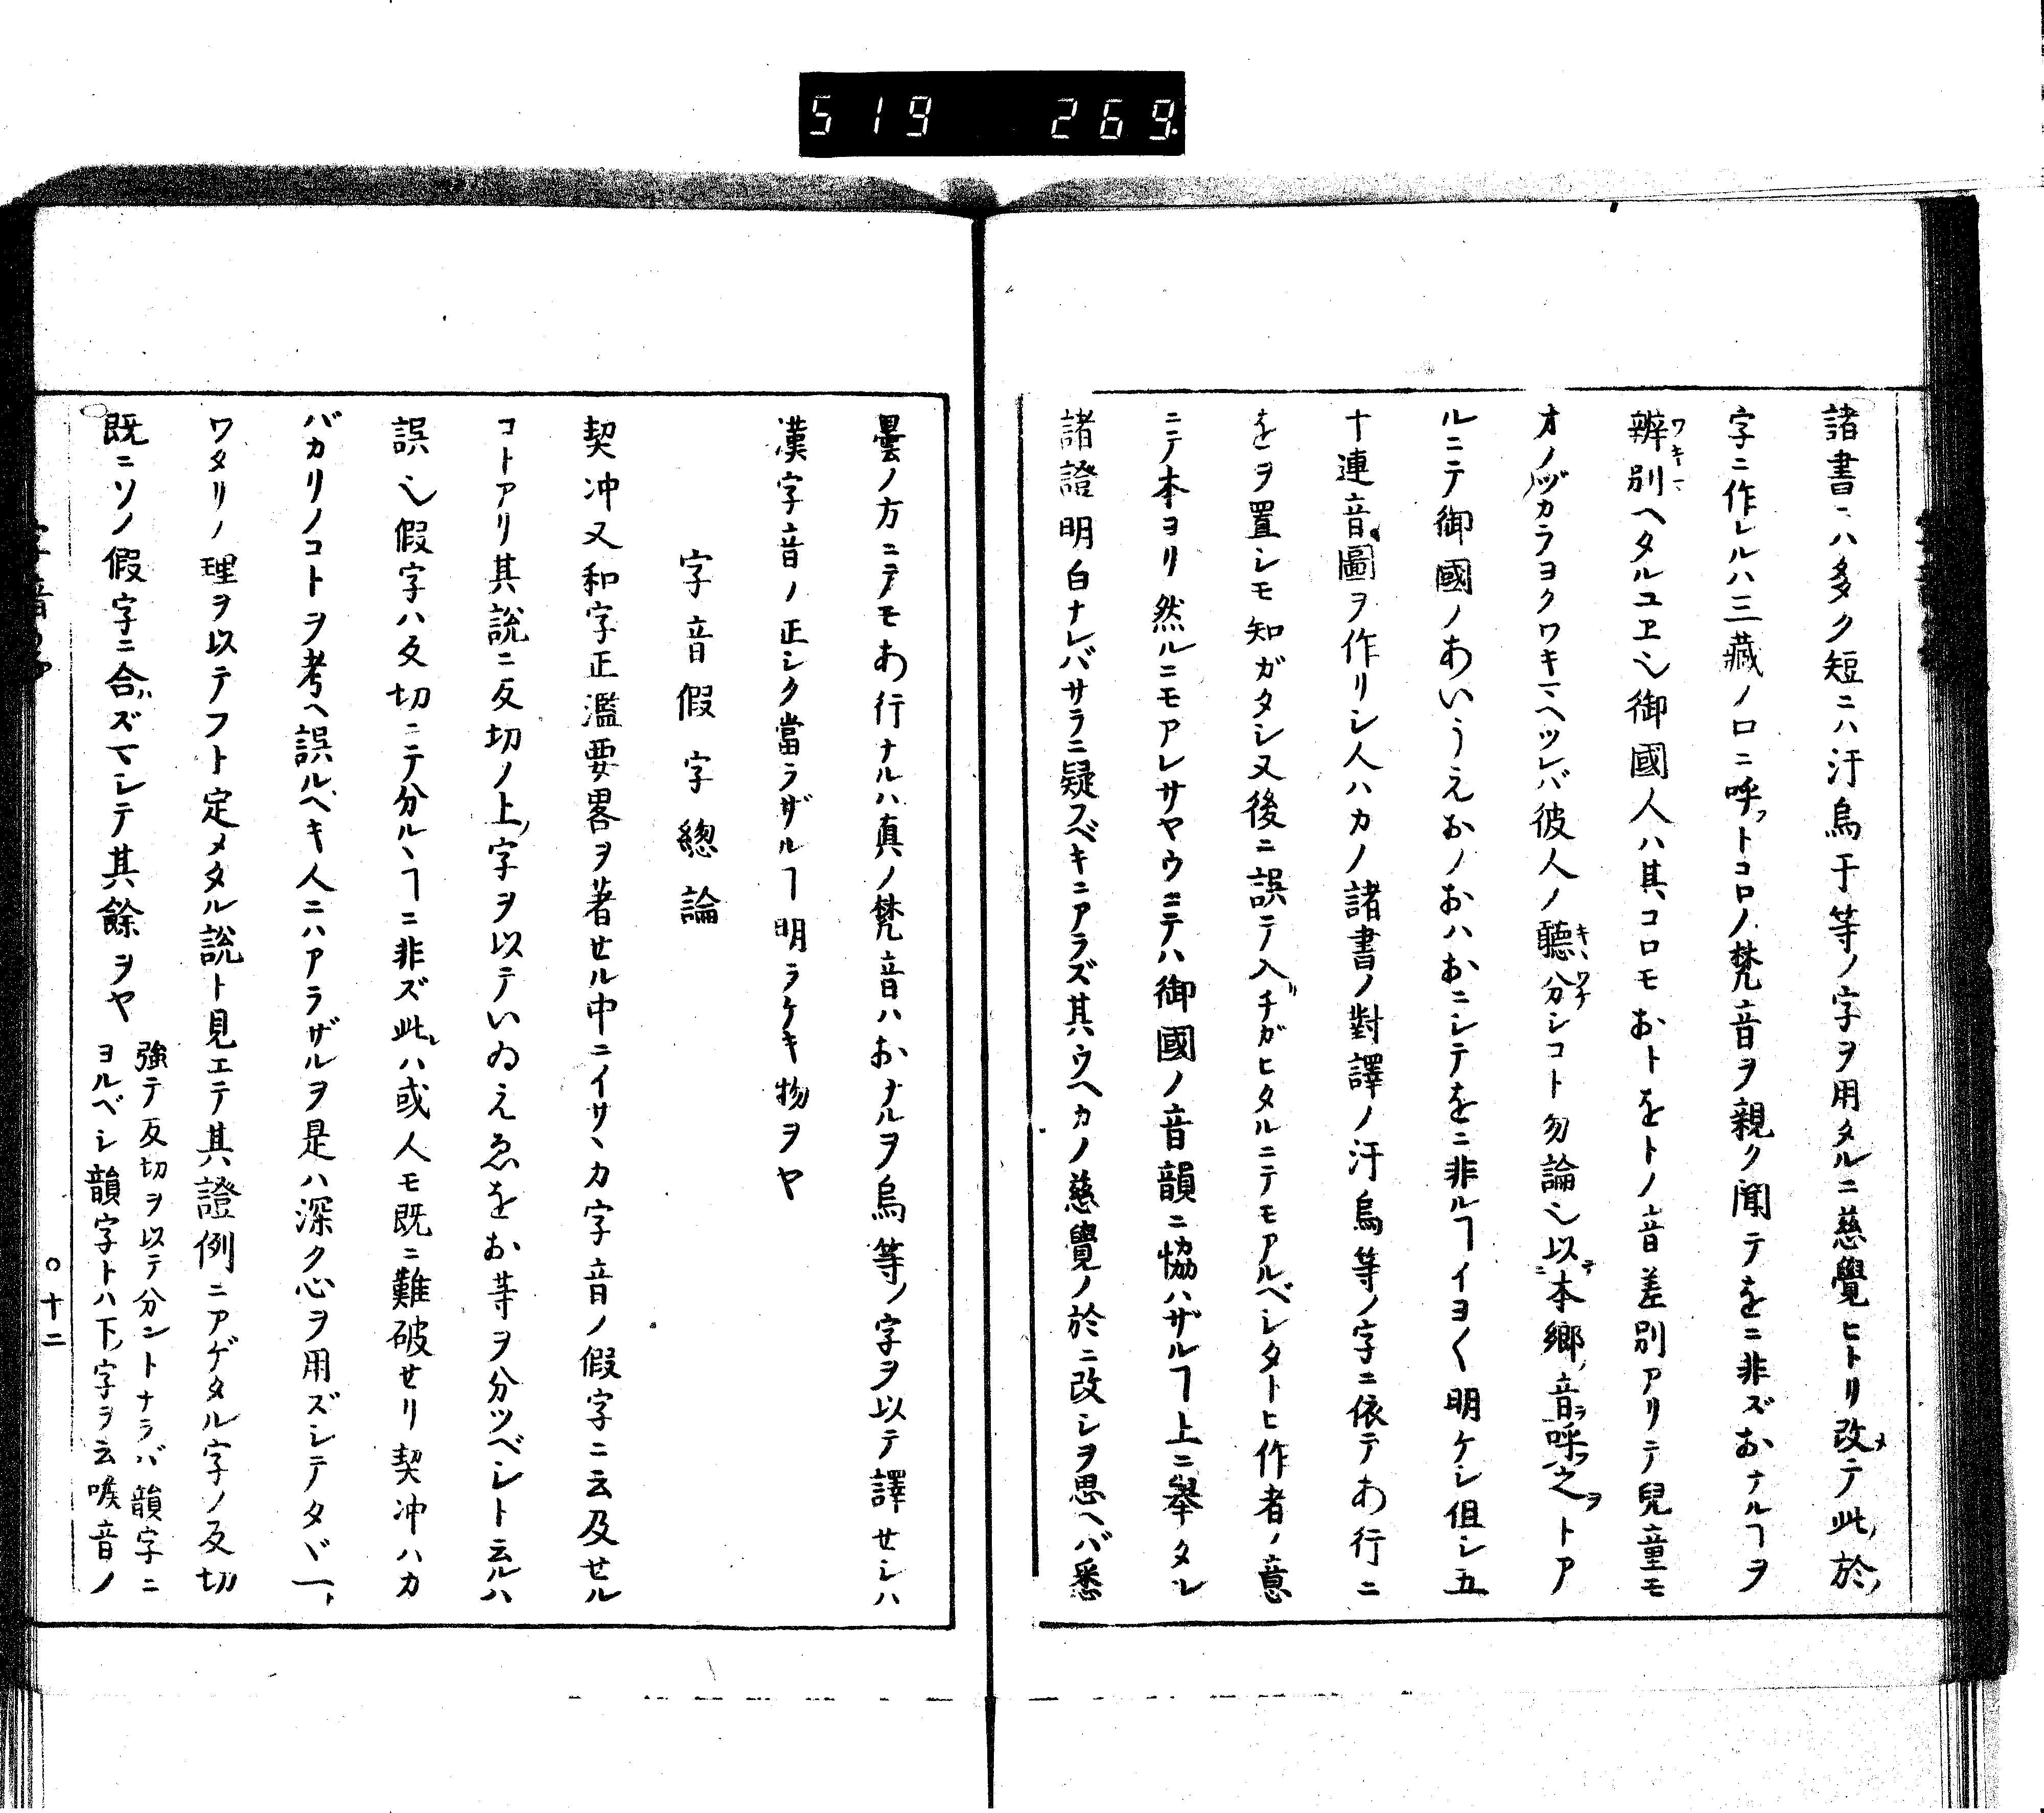 519 269.
諸書ニハ多ク短ニハ汙烏于等ノ字ヲ用タルニ慈覺ヒトリ改メテ此ノ於ノ
字ニ作レルハ三藏ノ口ニ呼フトコロノ梵音ヲ親ク聞テをニ非ズおナルヿヲ
辨別ヘタルユヱ也御國人ハ其コロモおトをトノ音差別アリテ兒童モ
オノヅカラヨクワキマヘツレバ彼人ノ聽分シコト勿論也以テ本郷ノ音ヲ呼フ之ヲトア
ルニテ御國ノあいうえおノおハおニシテをニ非ルヿイヨ〱明ケシ但シ五
十連音ノ圖ヲ作リシ人ハカノ諸書ノ對譯ノ汙烏等ノ字ニ依テあ行ニ
をヲ置シモ知ガタシ又後ニ誤テ入リチガヒタルニテモアルベシタトヒ作者ノ意
ニテ本ヨリ然ルニモアレサヤウニテハ御國ノ音韻ニ恊ハザルヿ上ニ舉タル
諸證明白ナレバサラニ疑フベキニアラズ其ウヘカノ慈覺ノ於ニ改シヲ思ヘバ悉
曇ノ方ニテモあ行ナルハ真ノ梵音ハおナルヲ烏等ノ字ヲ以テ譯セシハ
漢字音ノ正シク當ラザルヿ明ラケキ物ヲヤ
字音假字總論
契冲又和字正濫要畧ヲ著セル中ニイサヽカ字音ノ假字ニ云及セル
コトアリ其説ニ反切ノ上ノ字ヲ以テいゐえゑをお等ヲ分ツベシト云ルハ
誤也假字ハ反切ニテ分ルヽヿニ非ズ此レハ或人モ既ニ難破セリ契冲ハカ
バカリノコトヲ考ヘ誤ルベキ人ニハアラザルヲ是ハ深ク心ヲ用ズシテタヾ一ト
ワタリノ理ヲ以テフト定メタル説ト見エテ其證例ニアゲタル字ノ反切
既ニソノ假字ニ合ハズマシテ其餘ヲヤ
強テ反切ヲ以テ分ントナラバ韻字ニ
ヨルベシ韻字トハ下ノ字ヲ云喉音ノ
○十二